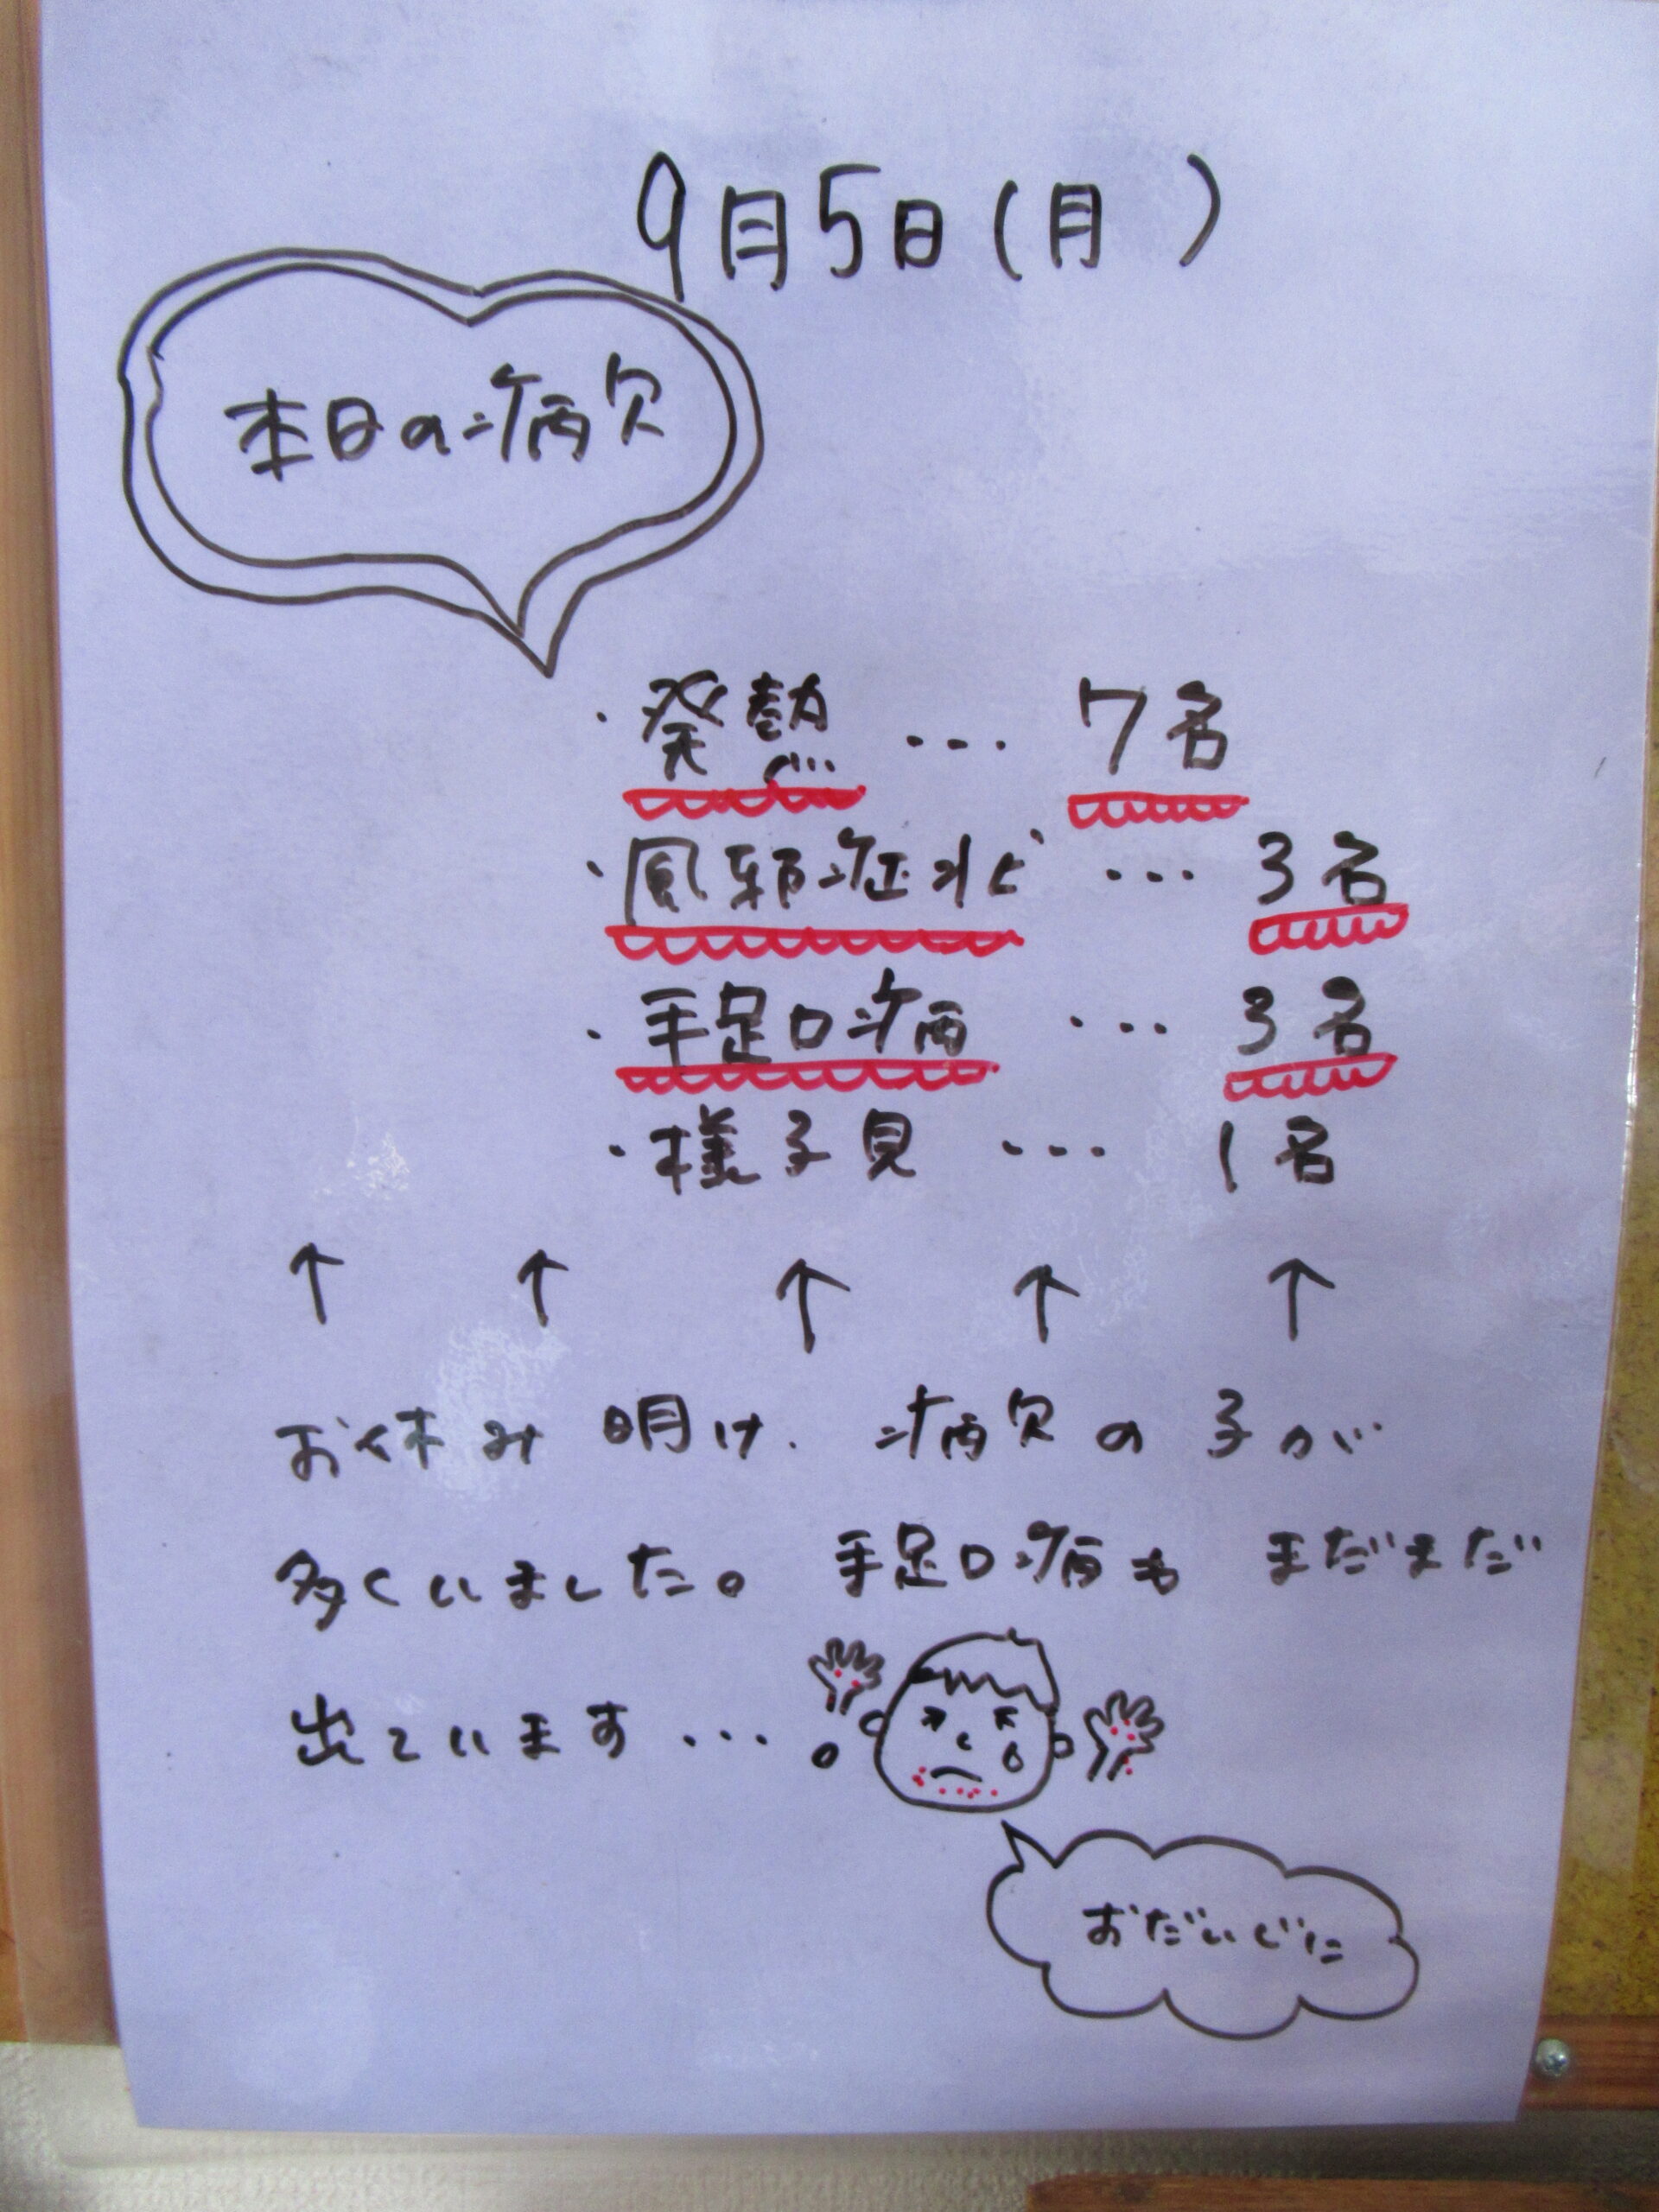 9月5日(月 )
本日の病欠
・発熱 ... 7名
・風邪症状 ... 3名
・手足口病 ... 3名
・様子見 ... 1名
↑ ↑ ↑ ↑ ↑
お休み明け、病欠の子が
多くいました。手足口病も まだまだ
出ています...。
おだいじに